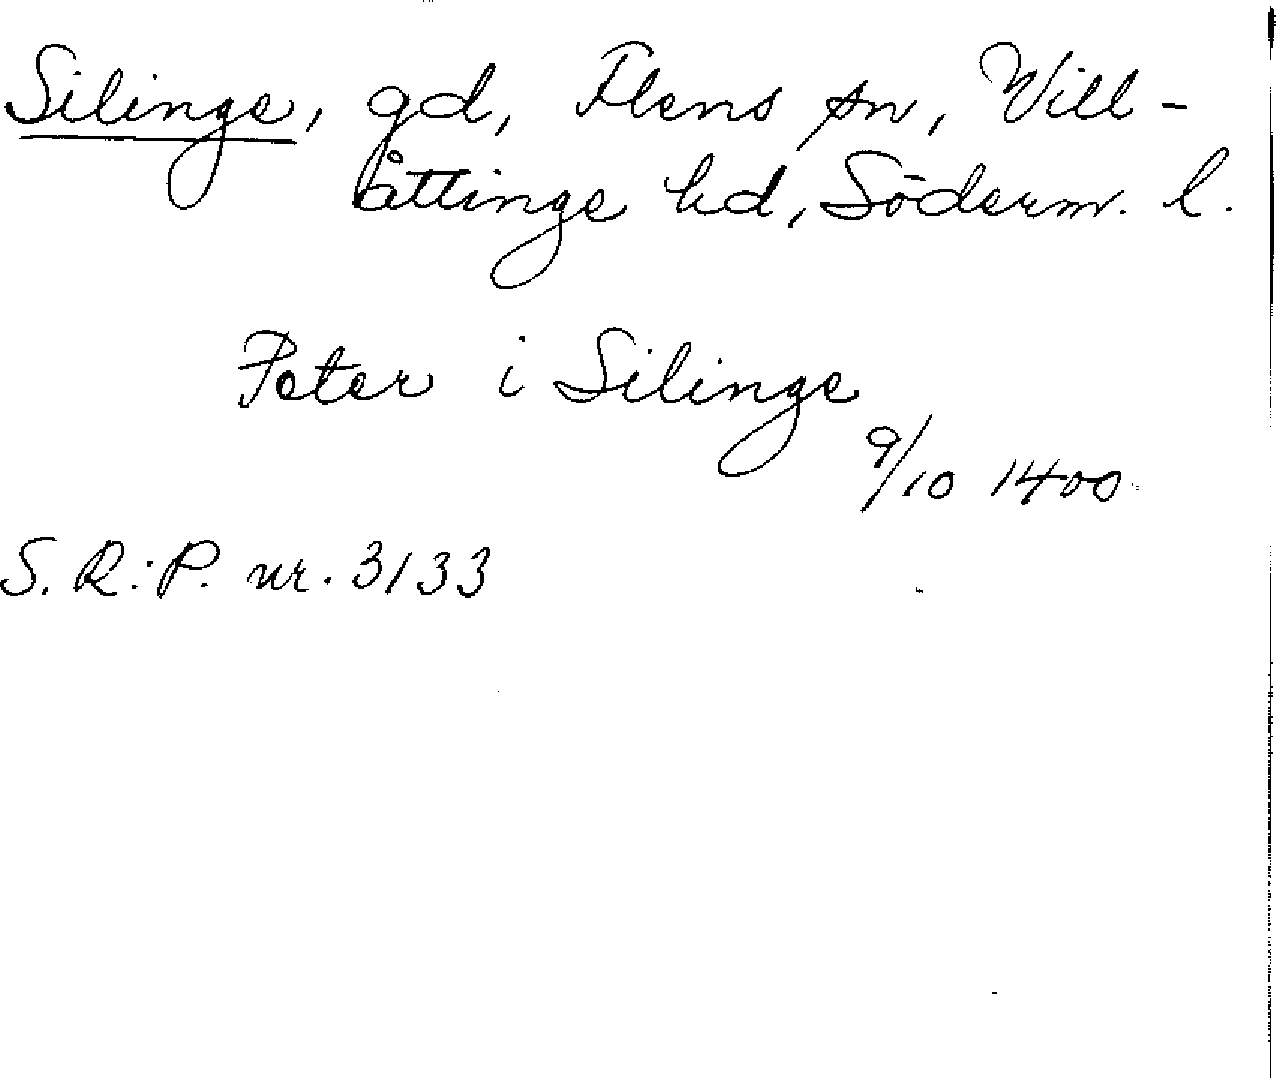 Silinge, gd, Flens sn, Vill-
åttinge hd, Söderm. l.
Peter i Silinge
9/10 1400
S. R:P. nr. 3133